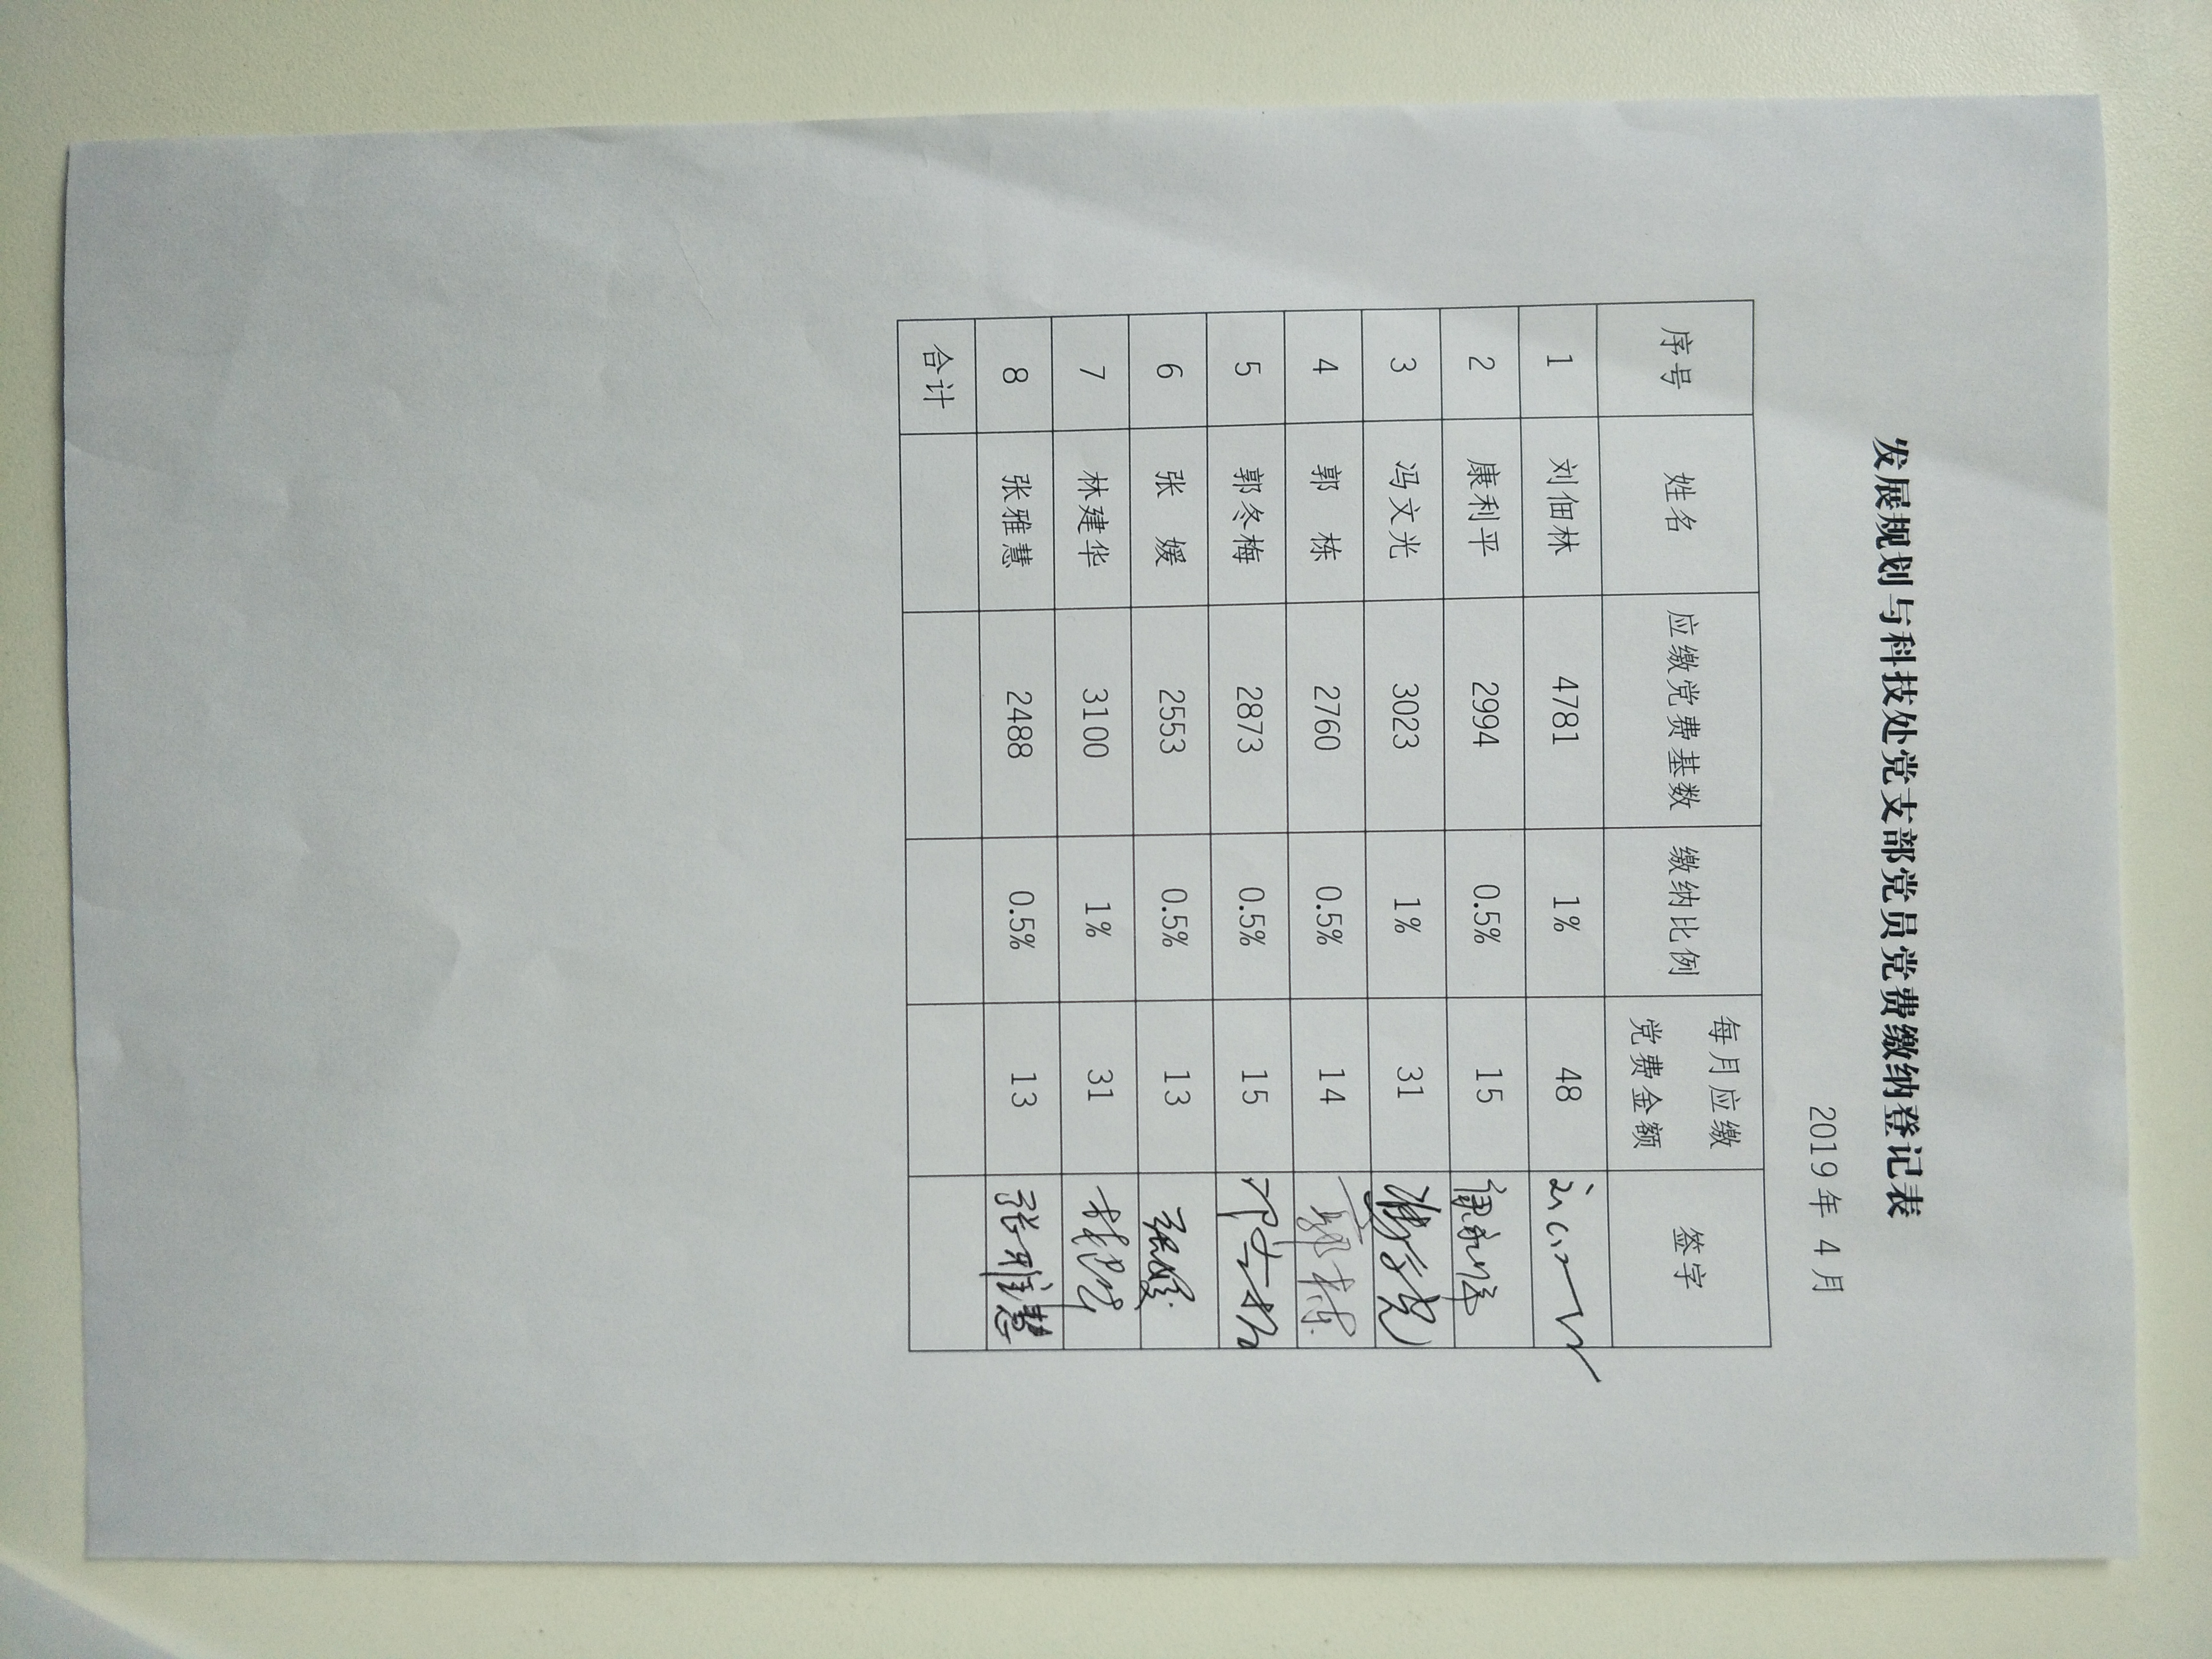 发展规划与科技处党支部党员党费缴纳登记表
2019年 4月
序号 姓名 应缴党费基数 缴纳比例 每月应缴党费金额 签字
1 刘佃林 4781 1% 48
2 康利平 2994 0.5% 15 康利平
3 冯文光 3023 1% 31 冯文光
4 郭 栋 2760 0.5% 14 郭栋
5 郭冬梅 2873 0.5% 15
6 张 媛 2553 0.5% 13 张媛
7 林建华 3100 1% 31 林建华
8 张雅慧 2488 0.5% 13 张雅慧
合计